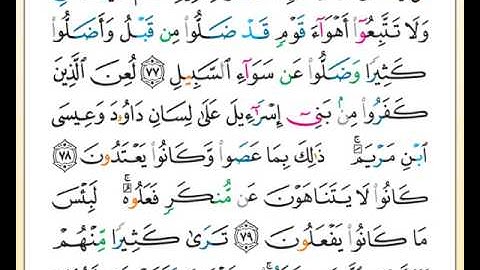 وَلَا تَتَّبِعُوٓا۟ أَهْوَآءَ قَوْمٍۢ قَدْ ضَلُّوا۟ مِن قَبْلُ وَأَضَلُّوا۟
كَثِيرًۭا وَضَلُّوا۟ عَن سَوَآءِ ٱلسَّبِيلِ ٧٧ لُعِنَ ٱلَّذِينَ
كَفَرُوا۟ مِنۢ بَنِىٓ إِسْرَٰٓءِيلَ عَلَىٰ لِسَانِ دَاوُۥدَ وَعِيسَى
ٱبْنِ مَرْيَمَ ۚ ذَٰلِكَ بِمَا عَصَوا۟ وَّكَانُوا۟ يَعْتَدُونَ ٧٨
كَانُوا۟ لَا يَتَنَاهَوْنَ عَن مُّنكَرٍۢ فَعَلُوهُ ۚ لَبِئْسَ
مَا كَانُوا۟ يَفْعَلُونَ ٧٩ تَرَىٰ كَثِيرًۭا مِّنْهُمْ